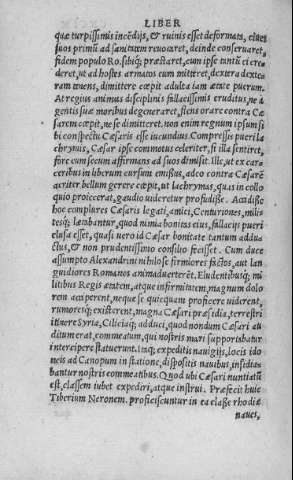 LIBER
quæ turpissimis incēdijs, & ruinis esset deformata, ciues
suos primū ad sanitatem reuocaret, deinde conseruaret,
fidem populo Ro. sibiq; præstaret, cum ipse tantū ei cre
deret, ut ad hostes armatos eum mitteret, dextera dexte
ram tenens, dimittere cœpit adulta iam ætate puerum.
At regius animus disciplinis fallacissimis eruditus, ne à
gentis suæ moribus degeneraret, flens orare contra Cæ
sarem cœpit, ne se dimitteret. non enim regnum ipsum si
bi conspectu Cæsaris esse iucundius. Compressis pueri la
chrymis, Cæsar ipse commotus celeriter, si illa sentiret,
fore cum secum affirmans ad suos dimisit. Ille, ut ex car
ceribus in liberum cursum emissus, adeo contra Cæsarē
acriter bellum gerere cœpit, ut lachrymas, quas in collo
quio proiecerat, gaudio uideretur profudisse. Accidisse
hoc complures Cæsaris legati, amici, Centuriones, mili
tesq; lætabantur, quod nimia bonitas eius, fallacijs pueri
elusa esset, quasi uero id Cæsar bonitate tantum addu
ctus, & non prudentissimo consilio fecisset. Cum duce
assumpto Alexandrini nihilo se firmiores factos, aut lan
guidiores Romanos animaduerterēt. Eludentibusq; mi
litibus Regis ætatem, atque infirmitatem, magnum dolo
rem acciperent, neque se quicquam proficere uiderent,
rumoresq; existerent, magna Cæsari præsidia, terrestri
itinere Syria, Ciliciaq; adduci, quod nondum Cæsari au
ditum erat, commeatum, qui nostris mari supportabatur
intercipere statuerunt. Itaq; expeditis nauigijs, locis ido
neis ad Canopum in statione, dispositis nauibus, insidia
bantur nostris commeatibus. Quod ubi Cæsari nuntiatū
est, classem iubet expediri, atque instrui. Præfecit huic
Tiberium Neronem. proficiscuntur in ea classe rhodiæ
naues,